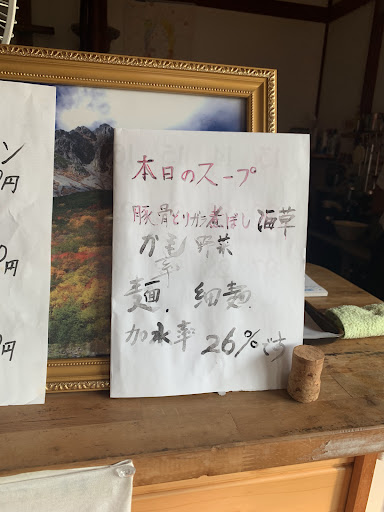 ン
0円
0円
円
本日のスープ
豚骨とりガラ煮ぼし海草
かも 野菜
麺、細麺
加水率 26%です